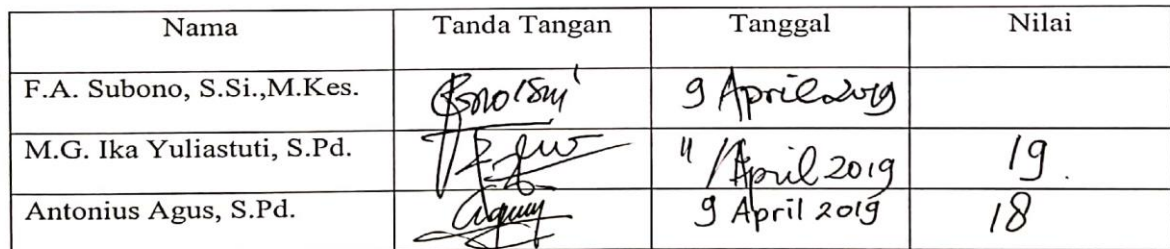 Nama Tanda Tangan Tanggal Nilai
F.A. Subono, S.Si.,M.Kes. 9 April 2019
M.G. Ika Yuliastuti, S.Pd. " / April 2019 19.
Antonius Agus, S.Pd. 9 April 2019 18